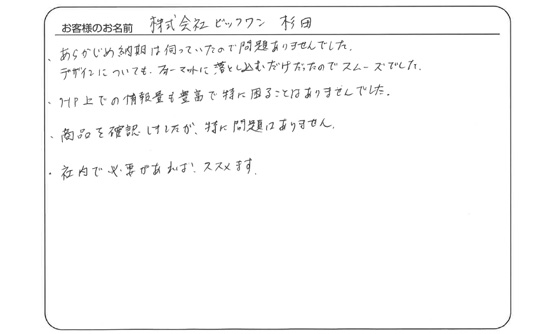 お客様のお名前 株式会社ビッグワン 杉田
・あらかじめ納期は伺っていたので問題ありませんでした。
デザインについても、フォーマットに落とし込むだけだったのでスムーズでした。
・HP上での情報量も豊富で特に困ることはありませんでした。
・商品を確認しましたが、特に問題はありません。
・社内で必要があれば、ススメます。